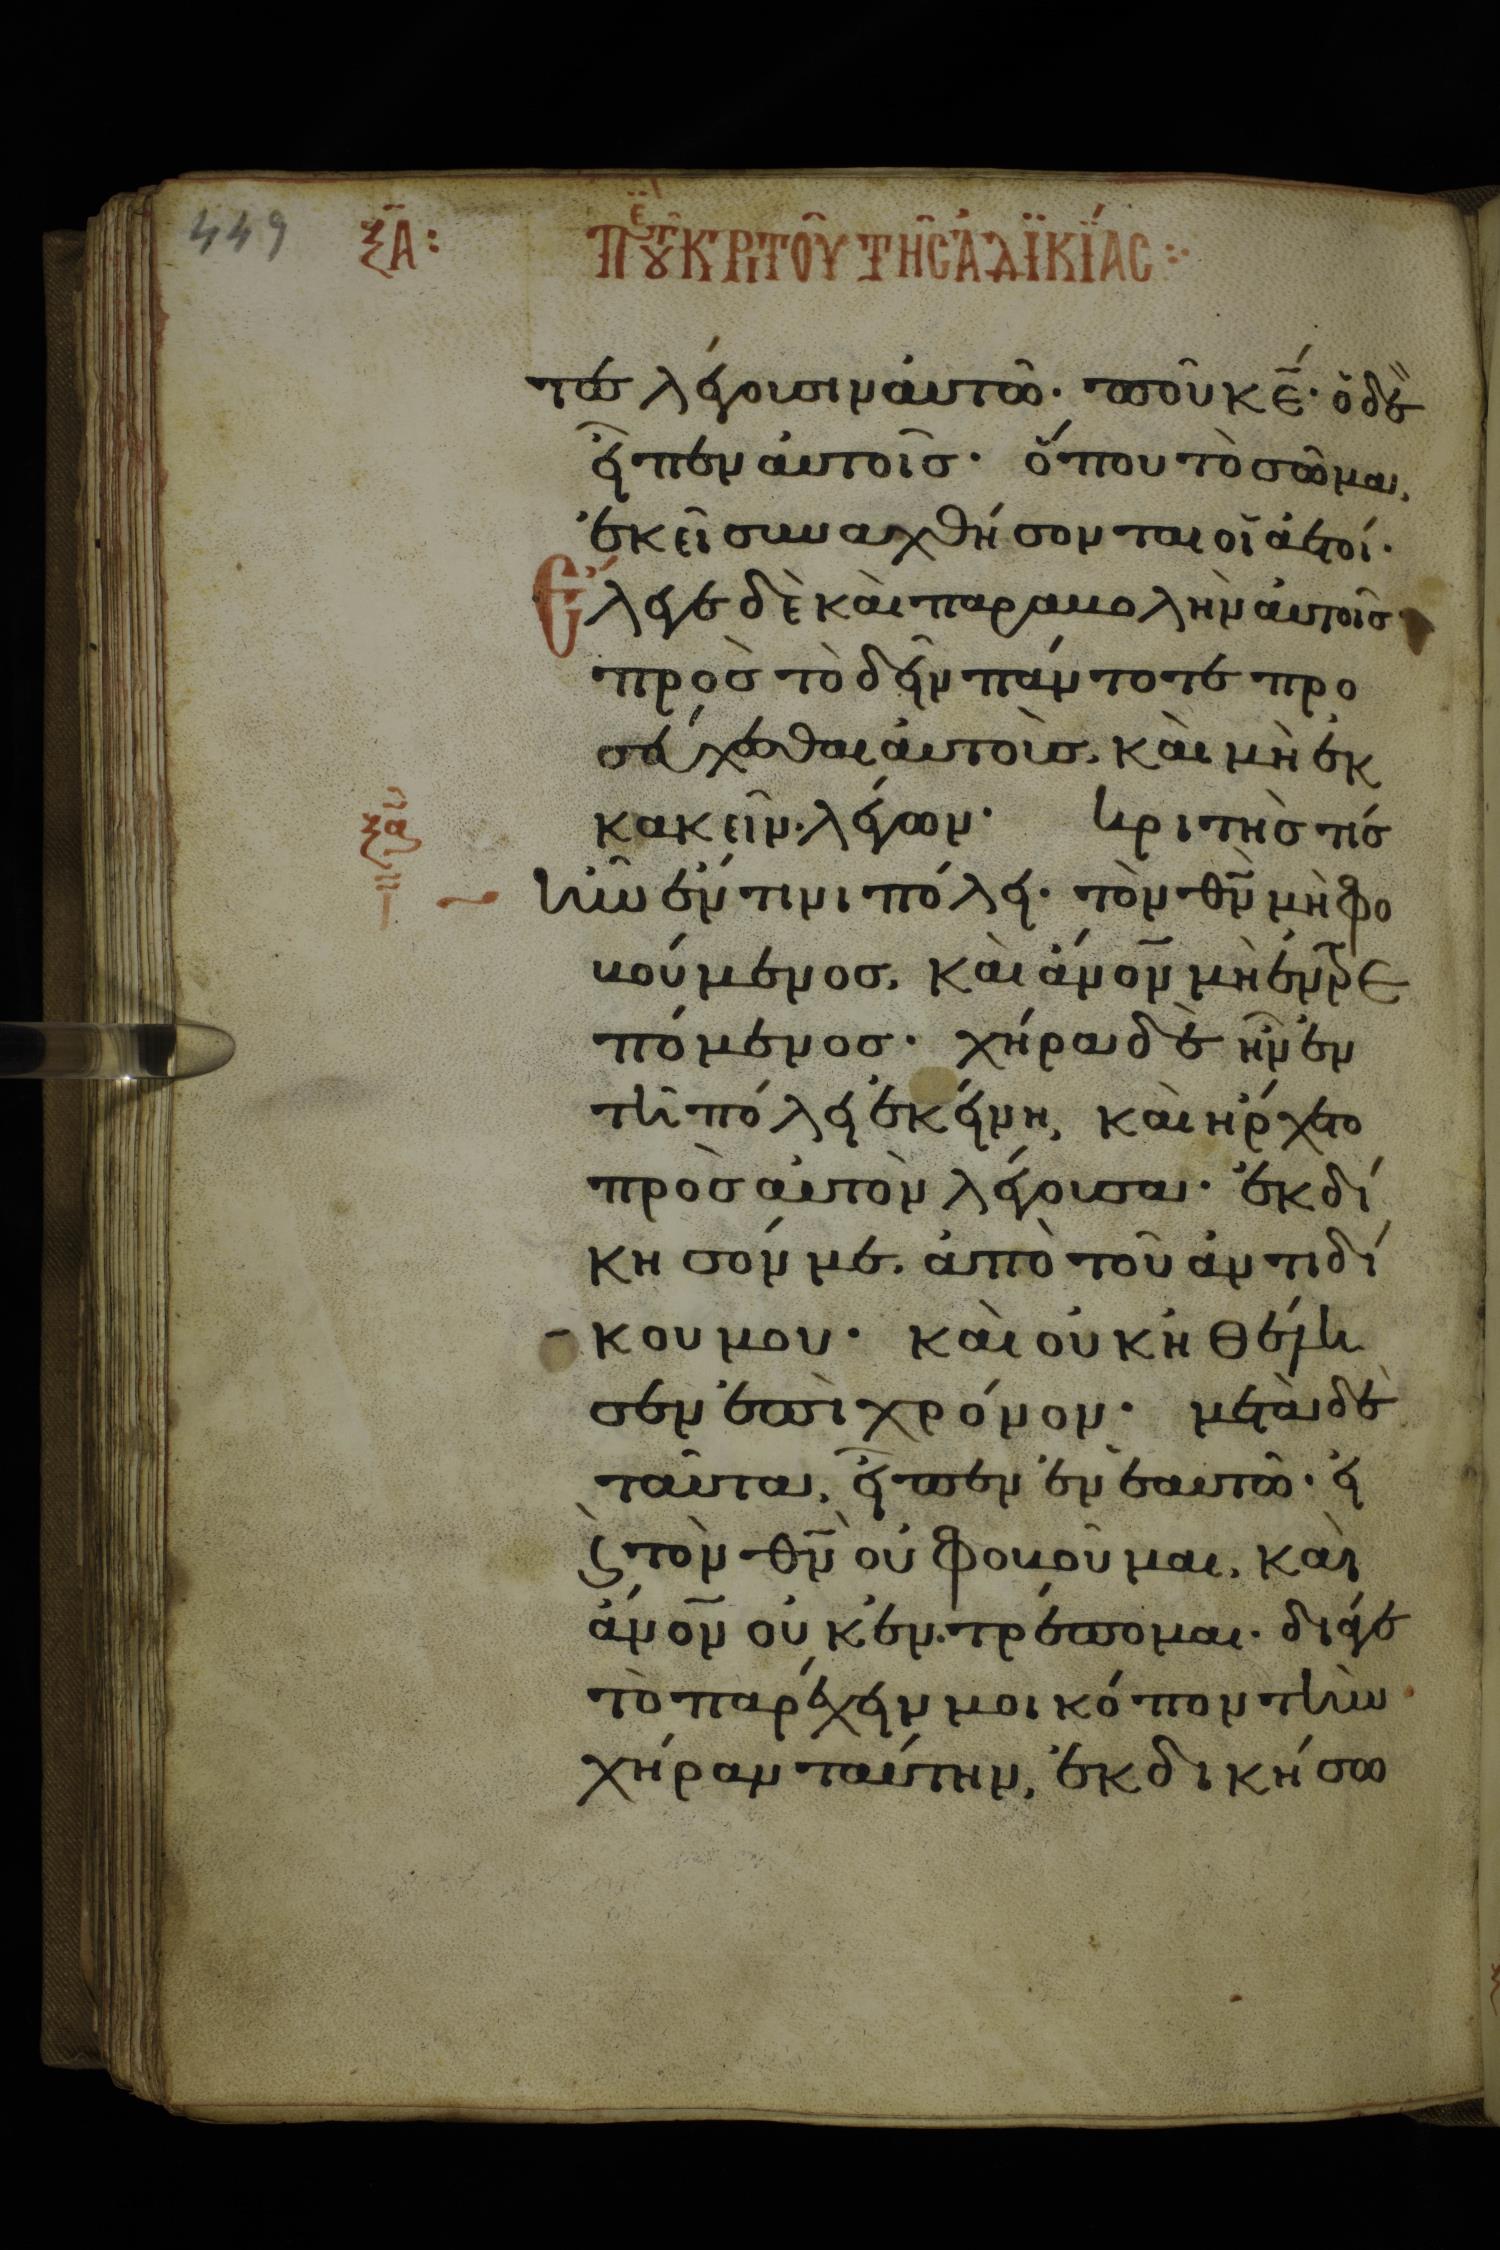 449
ξΑ: ΠΕΡῚ ΤΟΥ͂ ΚΡΙΤΟΥ͂ ΤΗ͂Σ ἈΔΪΚΪ́ΑΣ
τες λέγουσιν αὐτῶ· ποῦ κε̅· ὁ δὲ
εἶπεν αὐτοῖς· ὅπου τὸ σῶμα,
ἐκεῖ συναχθήσονται οἱ ἀετοί·
Ἔλεγε δὲ καὶ παραβολὴν αὐτοῖς
πρὸς τὸ δεῖν πάντοτε προ
σεύχεσθαι αὐτοὺς, καὶ μὴ ἐκ
κακεῖν· λέγων· κριτὴς τίς
ξα
ἦν ἔν τινι πόλει· τὸν θν̅ μὴ φο
βούμενος, καὶ ἄνον̅ μὴ ἐντρε
πόμενος· χήρα δὲ ἦν ἐν
τῆ πόλει ἐκείνη, καὶ ἤρχετο
πρὸς αὐτὸν λέγουσα· ἐκδί
κησόν με, ἀπὸ τοῦ ἀντιδί
κου μου· καὶ οὐκ ἠθέλη
σεν ἐπὶ χρόνον· μετὰ δὲ
ταῦτα, εἶπεν ἐν ἑαυτῶ· εἰ
ϗ τὸν θν̅ οὐ φοβοῦμαι, καὶ
ἄνον̅ οὐκ ἐντρέπομαι· διά γε
τὸ παρέχειν μοι κόπον τὴν
χήραν ταύτην, ἐκδικήσω